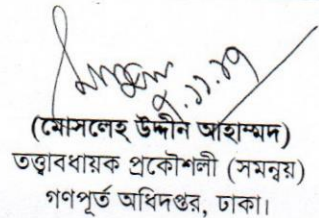 (মোসলেহ উদ্দীন আহাম্মদ)
তত্ত্বাবধায়ক প্রকৌশলী (সমন্বয়)
গণপূর্ত অধিদপ্তর, ঢাকা।